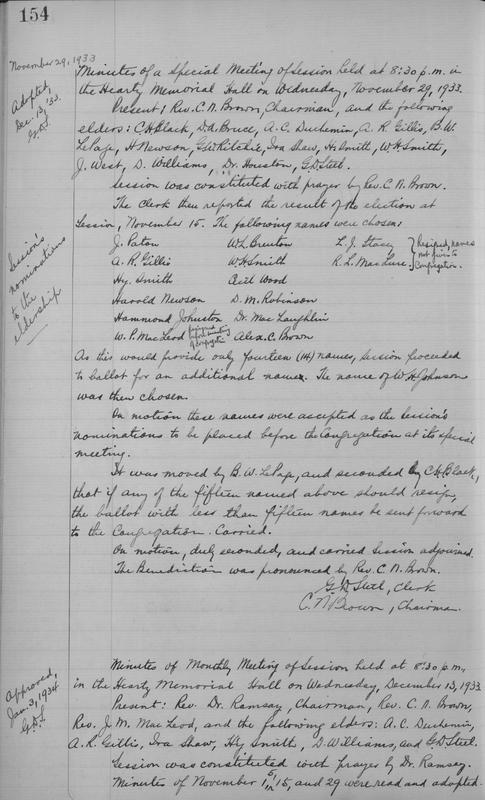 154
November 29, 1933
Adopted,
Dec. 13, '33.
G.D.S.
Minutes of a Special Meeting of Session held at 8:30 p.m. in
the Heartz Memorial Hall on Wednesday, November 29, 1933.
Present: Rev. C. N. Brown, Chairman, and the following
elders: C. H. Black, D. A. Bruce, A. C. Duchemin, A. R. Gillis, B. W.
LePage, H Newson, Ritchie, Ira Shaw, H. Smith, W. H. Smith,
J. West, D. Williams, Dr. Houston, G. D. Steel.
Session was constituted with prayer by Rev. C. N. Brown.
The Clerk then reported the result of the election at
Session, November 15. The following names were chosen:
Session's
nominations
to the
eldership
J. Paton W. L. Brenton L. J. Stacy } Resigned, names
A. R. Gillis W. H. Smith R. L. MacLure. not given to
Hy. Smith Cecil Wood Congregation.
Harold Newson D. M. Robinson
Hammond Johnston Dr. MacLaughlin
W. P. MacLeod resigned before meeting of Congregation Alex. C. Brown
As this would provide only fourteen (14) names, Session proceeded
to ballot for an additional name. The name of W. H. Johnson
was then chosen.
On motion these names were accepted as the Session's
nominations to be placed before the Congregation at its special
meeting.
It was moved by B. W. LePage, and seconded by C. H. Black,
that if any of the fifteen named above should resign,
the ballot with less than fifteen names be sent forward
to the Congregation. Carried.
On motion, duly seconded, and carried Session adjourned.
The Benediction was pronounced by Rev. C. N. Brown.
G. D. Steel, Clerk
C. N Brown, Chairman.
Approved,
Jan. 3, 1934
G.D.S.
Minutes of Monthly Meeting of Session held at 8:30 p.m.,
in the Heartz Memorial Hall on Wednesday, December 13, 1933.
Present: Rev. Dr. Ramsay, Chairman, Rev. C. N. Brown,
Rev. J. M. MacLeod, and the following elders: A. C. Duchemin,
A. R. Gillis, Ira Shaw, Hy Smith, D. Williams, and G. D. Steel.
Session was constituted with prayer by Dr. Ramsay.
Minutes of November 15, and 29 were read and adopted.